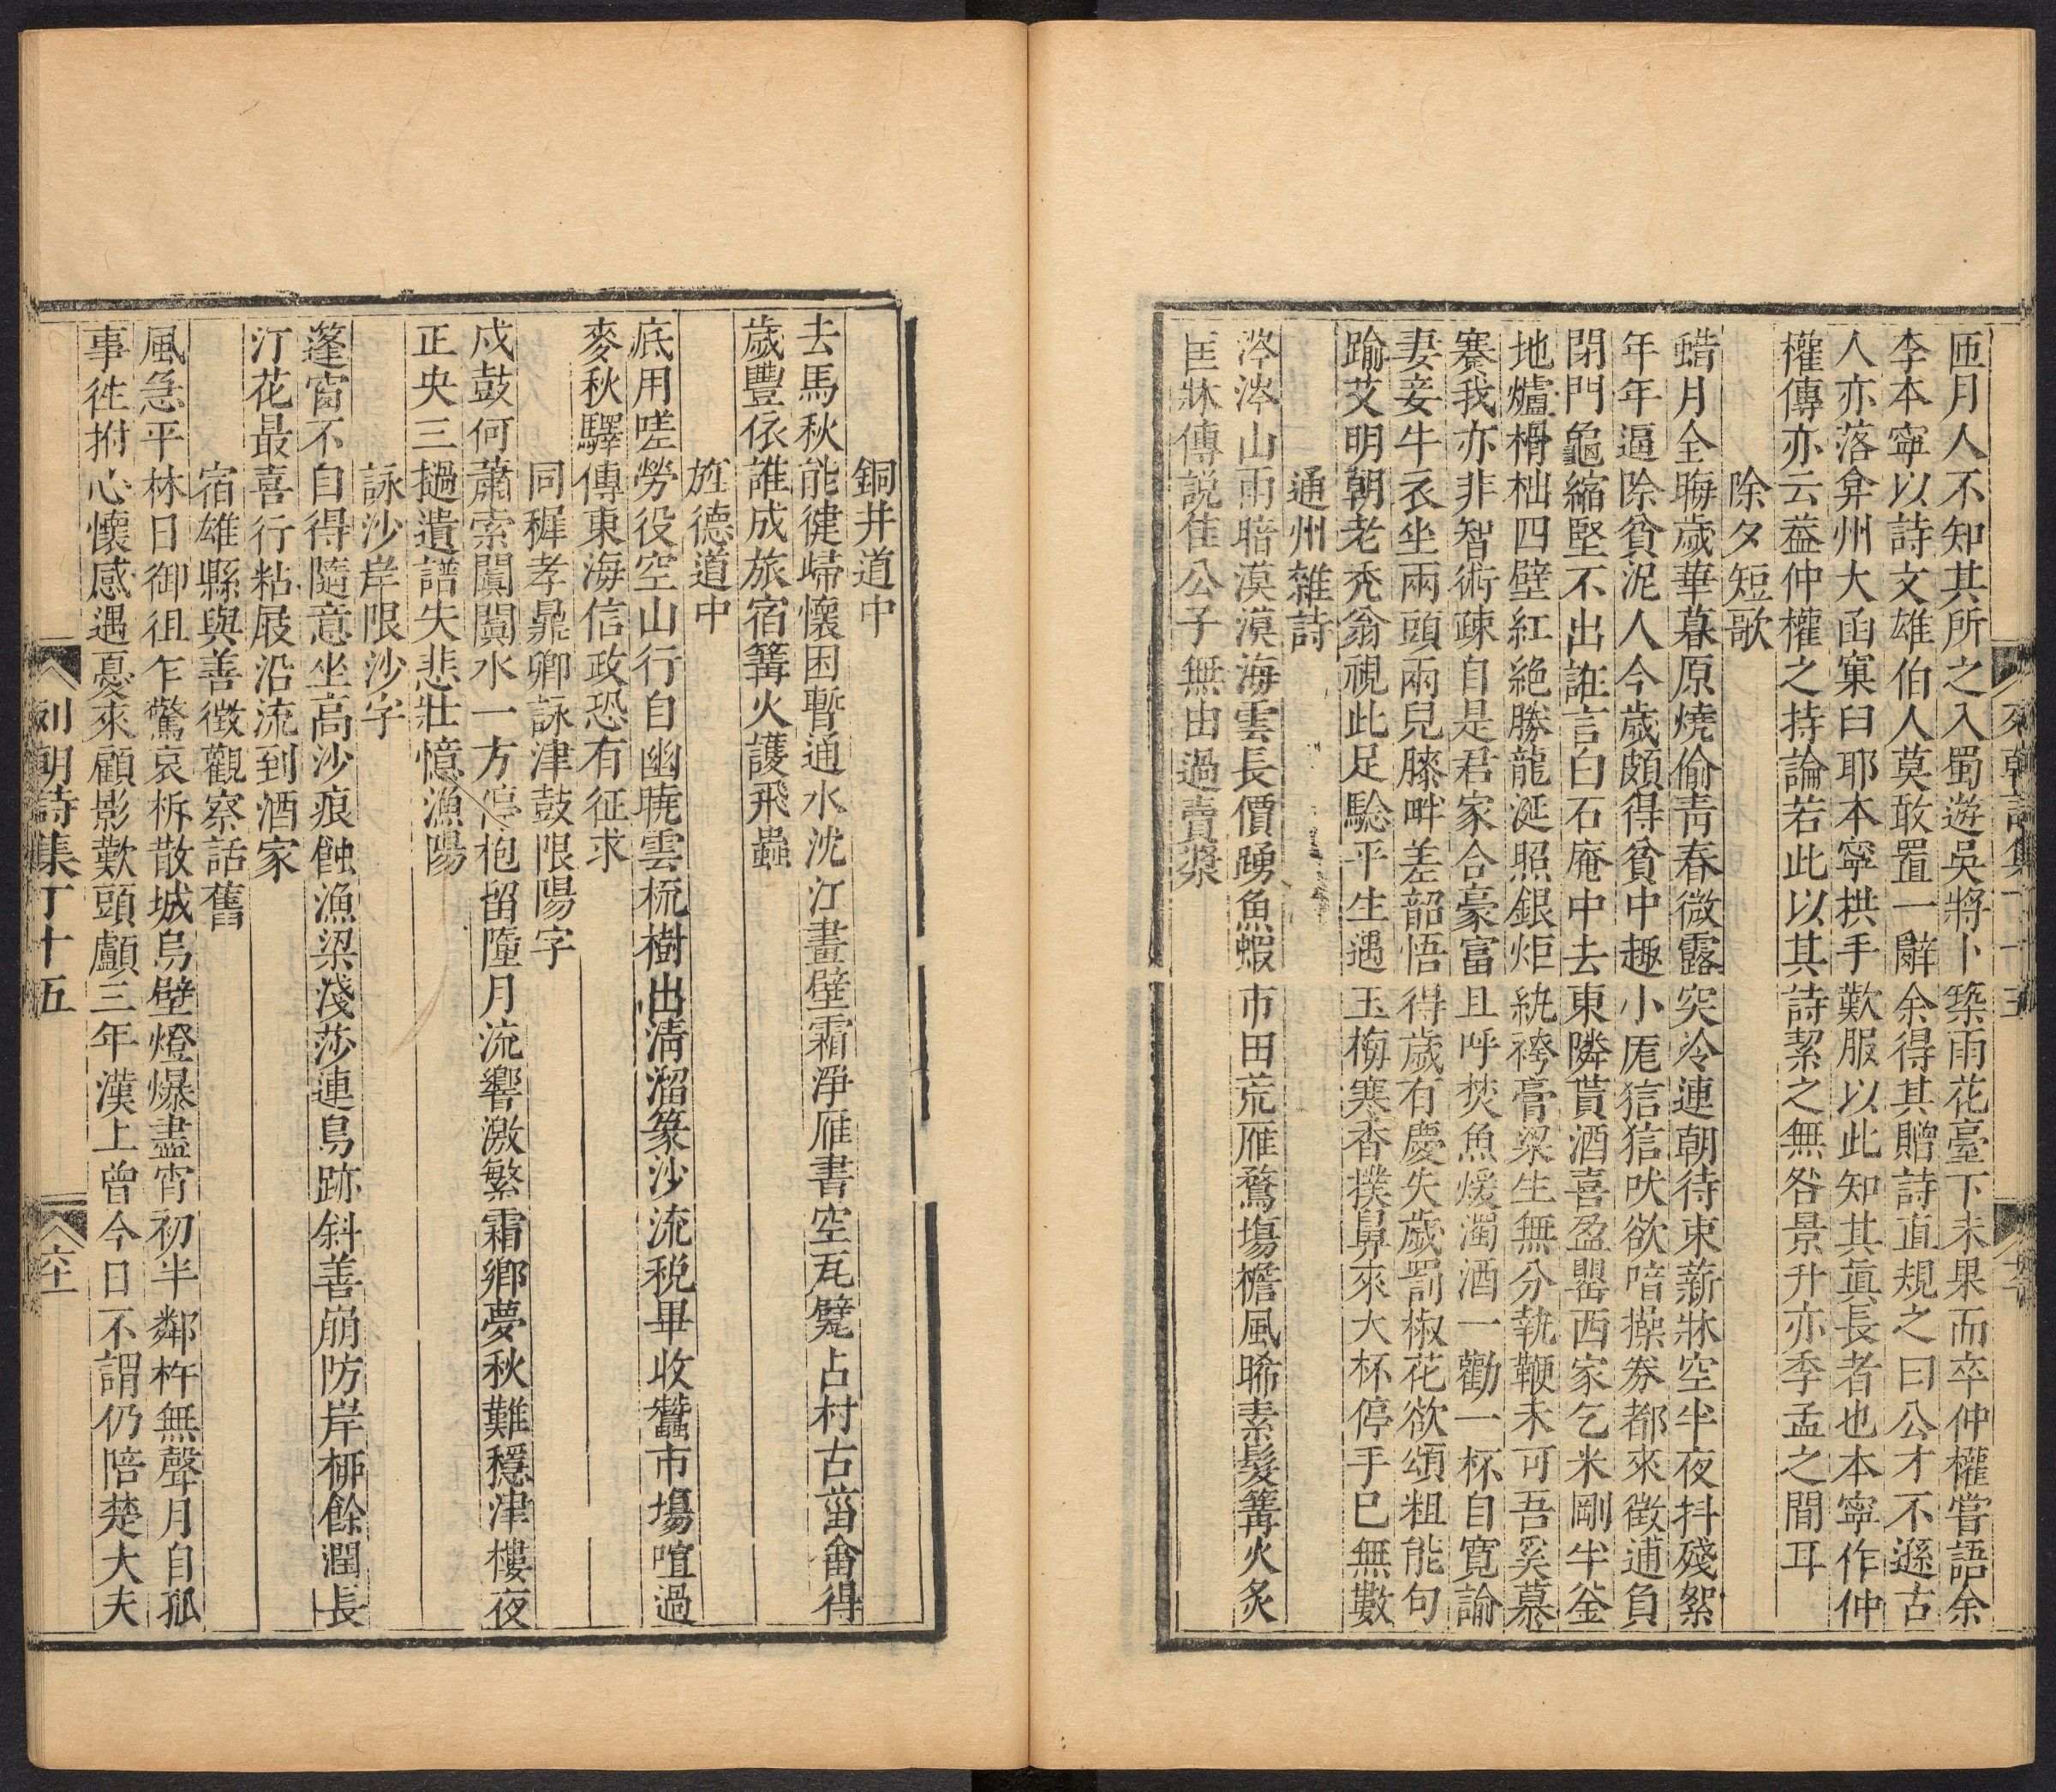 匝月人不知其所之入蜀遊吳將卜築雨花臺下未果而卒仲權嘗語余
李本寧以詩文雄伯人莫敢置一辭余得其贈詩直規之曰公才不遜古
人亦落弇州大函窠臼耶本寧拱手歎服以此知其眞長者也本寧作仲
權傳亦云益仲權之持論若此以其詩絜之無咎景升亦季孟之間耳
除夕短歌
蜡月全晦歲華暮原燒偷靑春微露突冷連朝待束薪牀空半夜抖殘絮
年年逼除貧泥人今歲頗得貧中趣小厖狺狺吠欲喑操券都來徵逋負
閉門龜縮堅不出誑言白石庵中去東隣貰酒喜盈罌西家乞米剛半釜
地爐榾柮四壁紅絶勝龍涎照銀炬紈袴膏粱生無分執鞭未可吾奚慕
褰我亦非智術疎自是君家合豪富且呼焚魚煖濁酒一勸一杯自寬諭
妻妾牛衣坐兩頭兩兒膝畔差韶悟得歲有慶失歲罰椒花欲頌粗能句
踰艾明朝老秃翁視此足騐平生遇玉梅寒香撲鼻來大杯停手已無數
通州雜詩
涔涔山雨暗漠漠海雲長價踴魚蝦市田荒雁鶩塲檐風晞素髮篝火炙
匡牀傳說隹公子無由過賣漿
來朝詩集丁十五
銅井道中
去馬秋能健歸懷困暫通水沈江畫壁霜淨雁書空瓦甓占村古菑畬得
歲豐依誰成旅宿篝火護飛蟲
旌德道中
底用嗟勞役空山行自幽曉雲梳樹出淸溜篆沙流稅畢收蠶市塲喧過
麥秋驛傳東海信政恐有征求
同穉孝鼎卿詠津鼓限陽字
戍鼓何蕭索闐闐水一方停枹留墮月流響激繁霜鄉夢秋難穩津樓夜
正央三撾遺譜失悲壯憶漁陽
詠沙岸限沙字
蓬窗不自得隨意坐高沙痕蝕漁梁淺莎連鳥跡斜善崩防岸柳餘潤長
汀花最喜行粘屐沿流到酒家
宿雄縣與善徵觀察話舊
風急平林日御徂乍驚哀柝散城烏壁燈爆盡宵初半鄰杵無聲月自孤
事徃拊心懷感遇憂來顧影歎頭顱三年漢上曾今日不謂仍陪楚大夫
列朝詩集丁十五
六十一